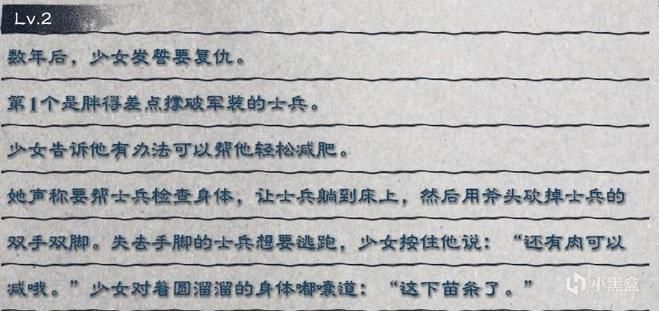 Lv.2
数年后，少女发誓要复仇。
第1个是胖得差点撑破军装的士兵。
少女告诉他有办法可以帮他轻松减肥。
她声称要帮士兵检查身体，让士兵躺到床上，然后用斧头砍掉士兵的
双手双脚。失去手脚的士兵想要逃跑，少女按住他说：“还有肉可以
减哦。”少女对着圆溜溜的身体嘟囔道：“这下苗条了。”
小黑盒